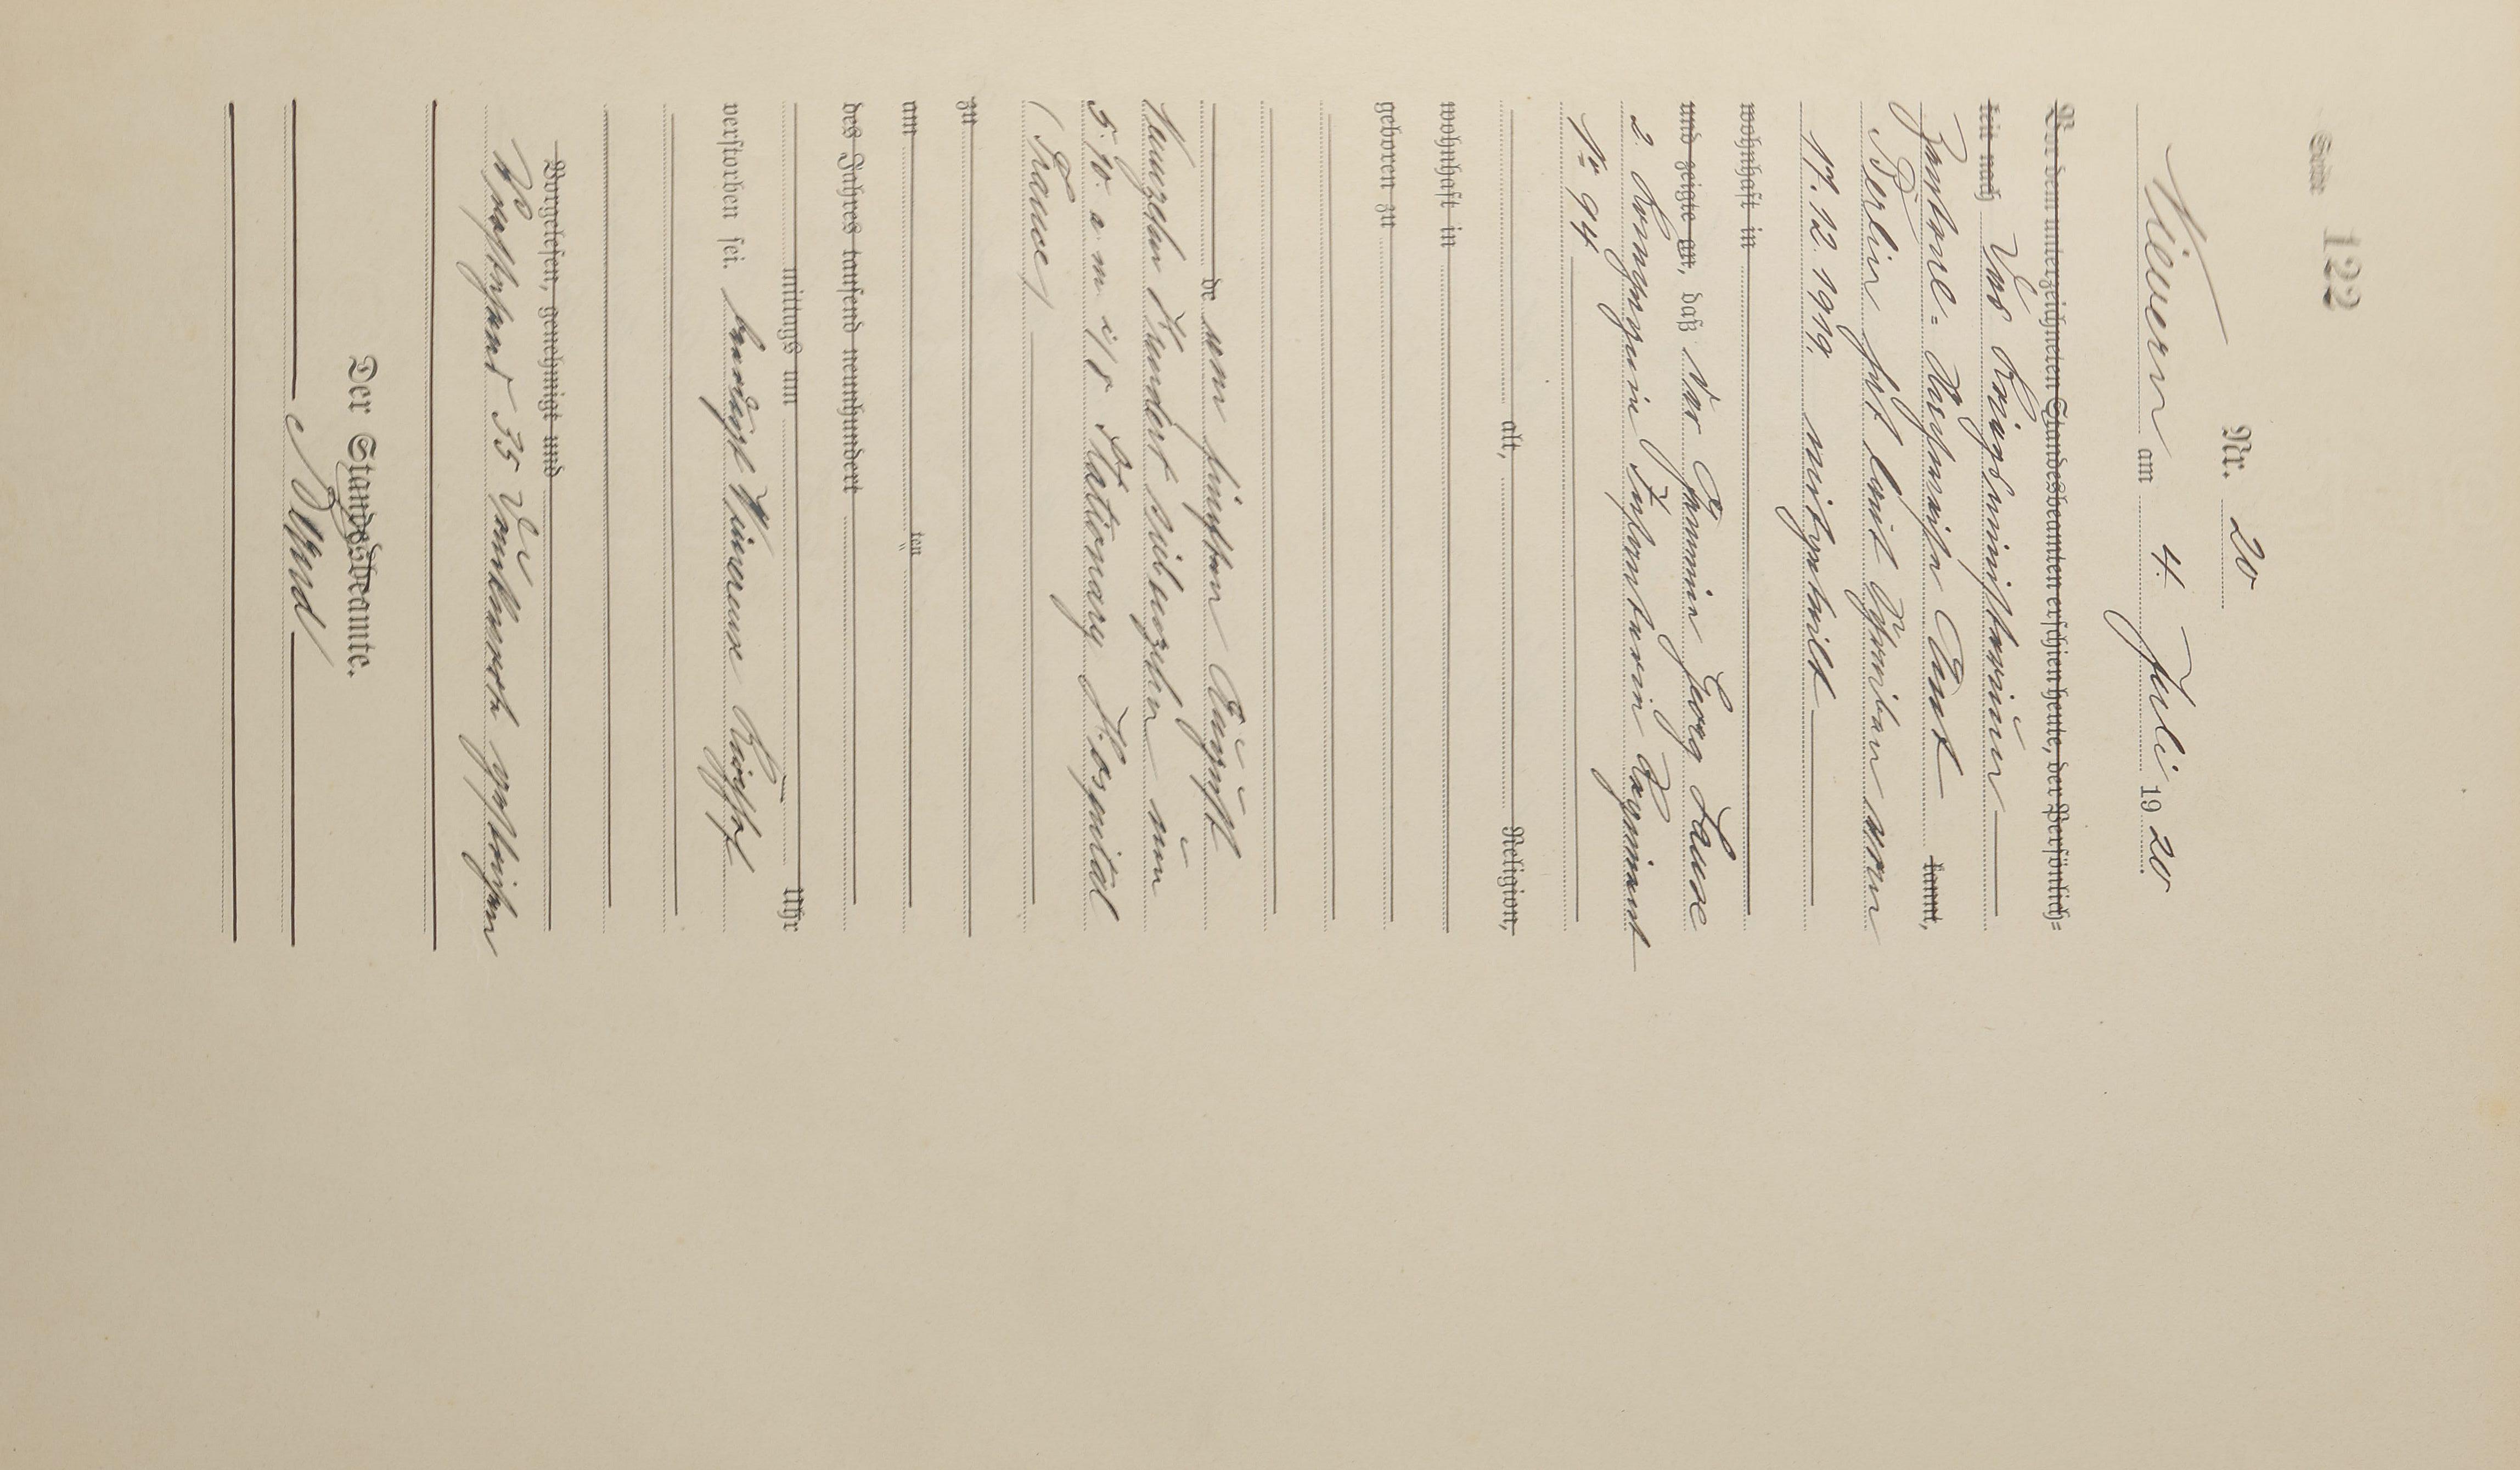 122
Nr. 20
Nieuern am 4. Juli 1920.
Vor dem unterzeichneten Standesbeamten erschien heute, der Persönlich-
keit nach
Das Kriegsministerium
Zentral-Nachweise Amt kannt,
Berlin hat laut Schreiben vom
17. 12. 1919. mitgeteilt
wohnhaft in
und zeigte an, daß der Gemeine Georg
2. Kompagnie Infanterie Regiment
Nr 94
alt, Religion,
wohnhaft in
geboren zu
de am fünften August
Neunzehn Hundert siebenzehn im
5.10. a. m. i/8 Stationary Hospital
(France)
zu
am ten
des Jahres tausend neunhundert
mittags um Uhr
verstorben sei. beerdigt Wimereux Kirchhof
Vorgelesen, genehmigt und
Vorstehend 35 Druckworte gestrichen
Der Standesbeamte.